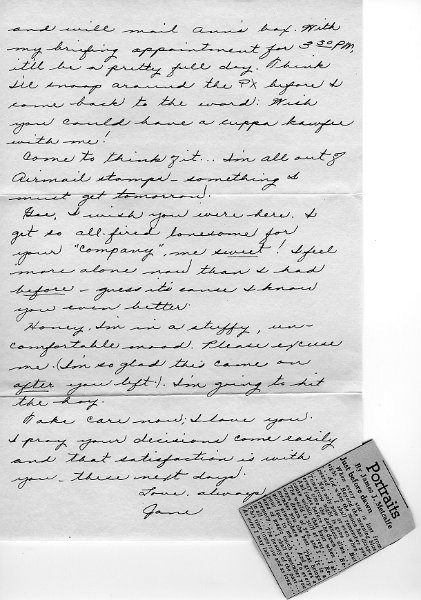 and will mail Ann's box. With
my briefing appointment for 3:30 PM,
it'll be a pretty full day. Think
I'll snoop around the PX before I
come back to the ward. Wish
you could have a cuppa kawfee
with me!
Come to think of it... I'm all out of
Airmail stamps - something I
must get tomorrow!
Gee, I wish you were here. I
get so all-fired lonesome for
your "company", me sweet! I feel
more alone now than I had
before - guess it's cause I know
you even better.
Honey, I'm in a stuffy, un-
comfortable mood. Please excuse
me. (I'm so glad this came on
after you left). I'm going to hit
the hay.
Take care now; I love you.
I pray your decisions come easily
and that satisfaction is with
you - these next days.
Love, always
Jane
Portraits
By James J. Metcalfe
Just before dawn